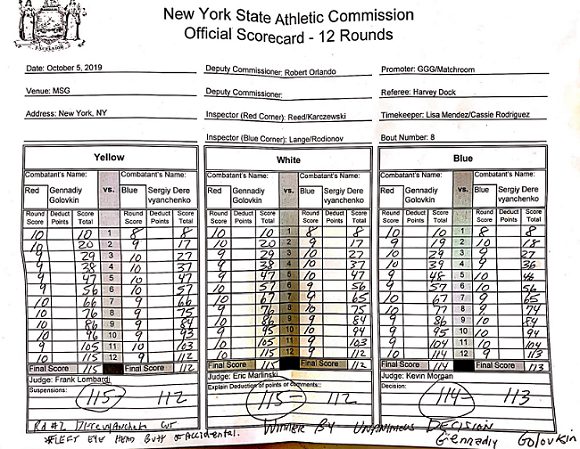 EXCELSIOR
New York State Athletic Commission
Official Scorecard - 12 Rounds
Date: October 5, 2019 Deputy Commissioner: Robert Orlando Promoter: GGG/Matchroom
Venue: MSG Deputy Commissioner: Referee: Harvey Dock
Address: New York, NY Inspector (Red Corner): Reed/Karczewski Timekeeper: Lisa Mendez/Cassie Rodriguez
Inspector (Blue Corner): Lange/Rodionov Bout Number: 8
Yellow White Blue
Combatant's Name: Combatant's Name: Combatant's Name: Combatant's Name: Combatant's Name: Combatant's Name:
Red Gennadiy vs. Blue Sergiy Dere Red Gennadiy vs. Blue Sergiy Dere Red Gennadiy vs. Blue Sergiy Dere
Golovkin vyanchenko Golovkin vyanchenko Golovkin vyanchenko
Round Deduct Score Round Deduct Score Round Deduct Score Round Deduct Score Round Deduct Score Round Deduct Score
Score Points Total Score Points Total Score Points Total Score Points Total Score Points Total Score Points Total
10 10 1 8 8 10 10 1 8 8 10 10 1 8 8
10 20 2 9 17 10 20 2 9 17 9 19 2 10 18
9 29 3 10 27 9 29 3 10 27 10 29 3 9 27
9 38 4 10 37 9 38 4 10 37 10 39 4 9 36
9 47 5 10 47 9 47 5 10 47 9 48 5 10 46
9 56 6 10 57 10 57 6 9 56 9 57 6 10 56
10 66 7 9 66 10 67 7 9 65 10 67 7 9 65
10 76 8 9 75 9 76 8 10 75 10 77 8 9 74
10 86 9 9 84 10 86 9 9 84 9 86 9 10 84
10 96 10 9 93 9 95 10 10 94 9 95 10 10 94
9 105 11 10 103 10 105 11 9 103 9 104 11 10 104
10 115 12 9 112 10 115 12 9 112 10 114 12 9 113
Final Score 115 Final Score 112 Final Score 115 Final Score 112 Final Score 114 Final Score 113
Judge: Frank Lombardi Judge: Eric Marlinski Judge: Kevin Morgan
Suspensions: Explain Deduction of points or comments: Decision:
115 112 115 112 114 113
Rd #2 Derevyanchenko cut WINNER BY UNANIMOUS DECISION
*LEFT EYE HEAD BUTT Accidental. Gennadiy Golovkin